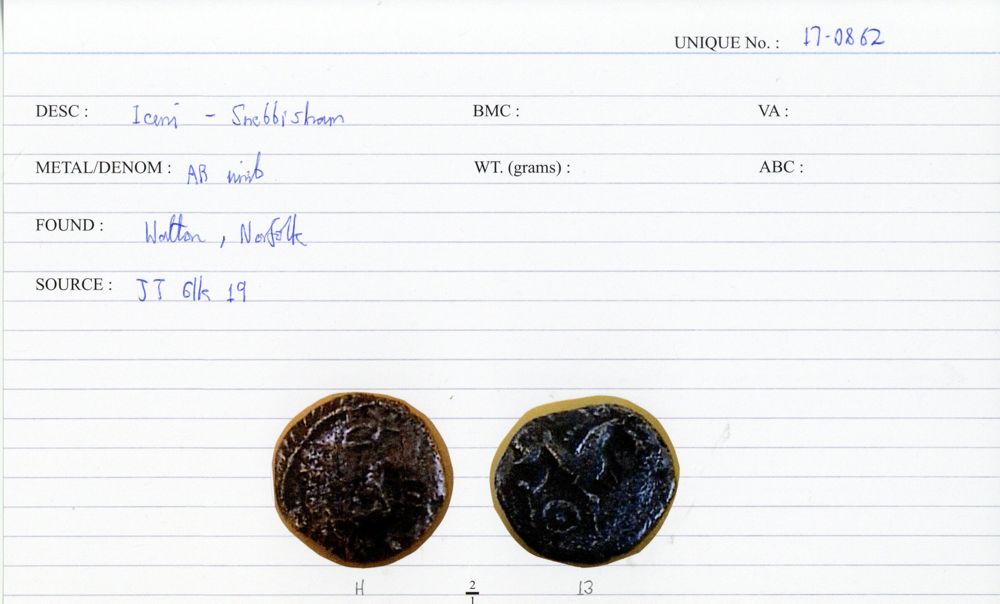 UNIQUE No. : 17-0862
DESC : Iceni - Snettisham BMC : VA :
METAL/DENOM : AR unit WT. (grams) : ABC :
FOUND : Walton, Norfolk
SOURCE : JT 6lk 19
H 2/1 13